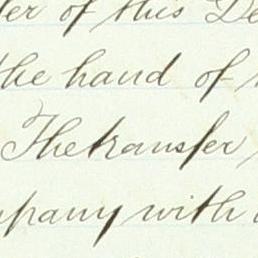 of this De
the hand of
The transfer
pany with